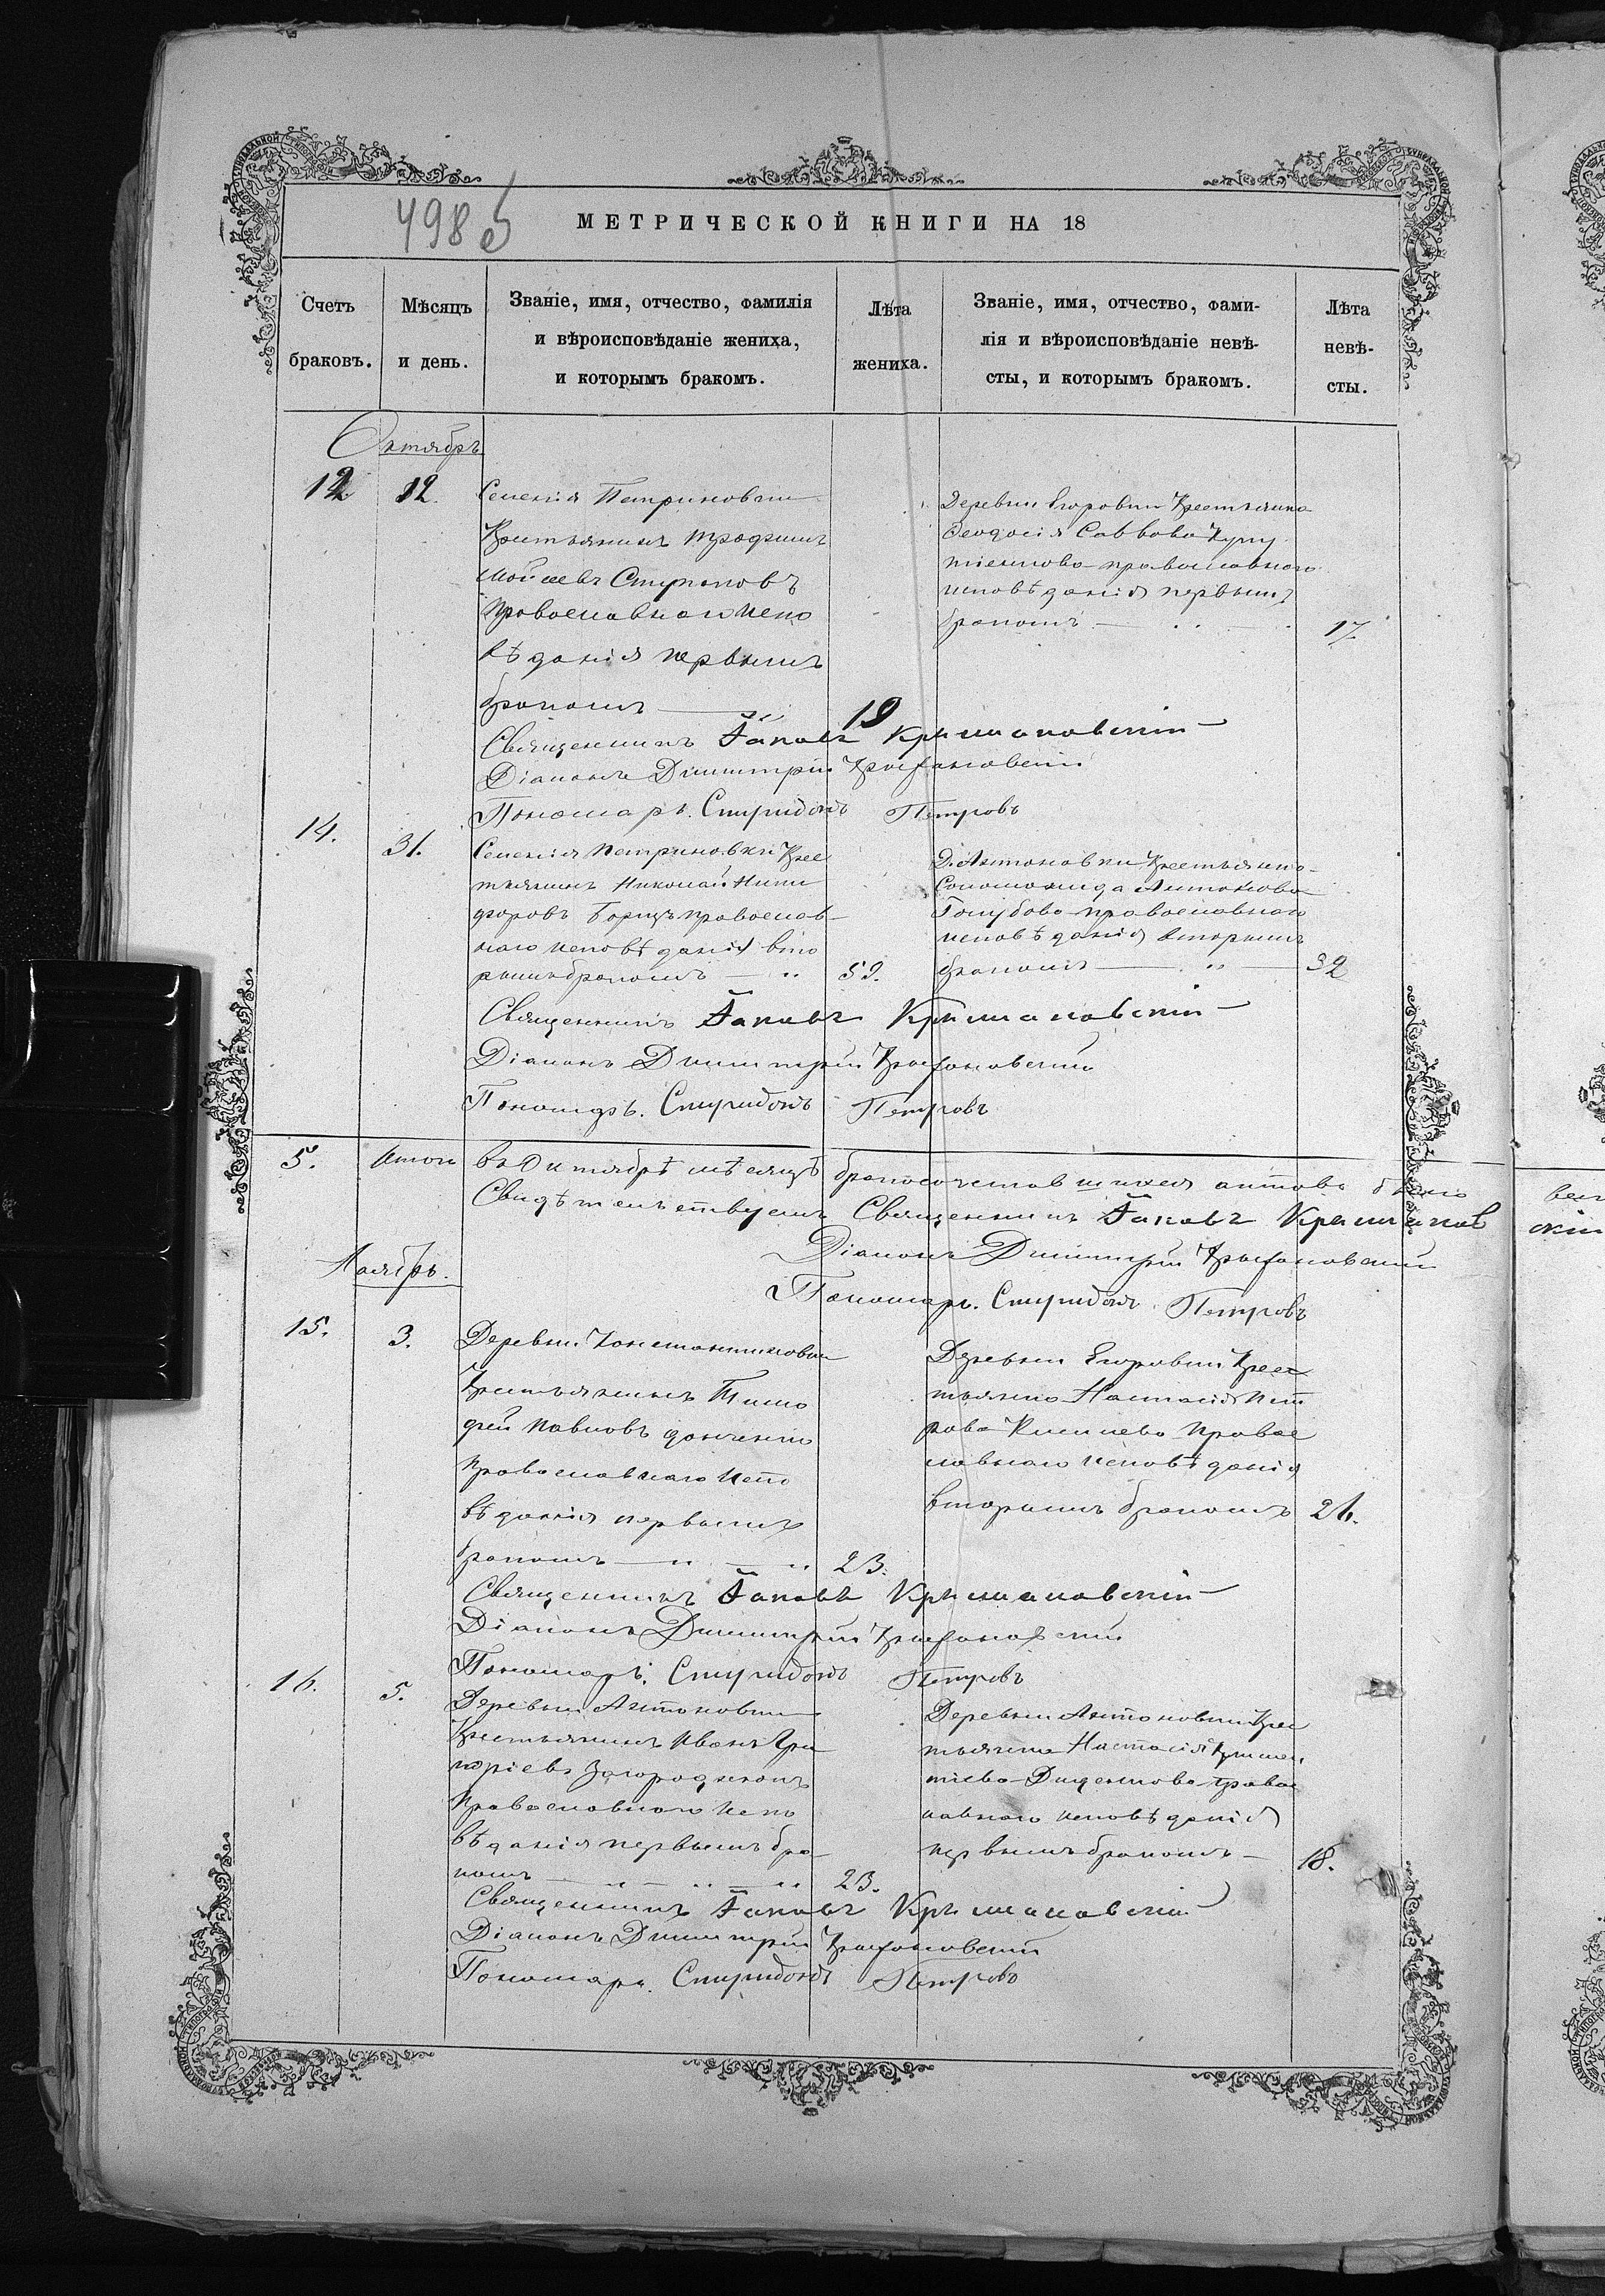 498 об
МЕТРИЧЕСКОЙ КНИГИ НА 18
Счетъ браковъ.
Мѣсяцъ и день.
Званіе, имя, отчество, фамилія
и вѣроисповѣданіе жениха,
и которымъ бракомъ.
Лѣта жениха.
Званіе, имя, отчество, фами-
лія и вѣроисповѣданіе невѣ-
сты, и которымъ бракомъ.
Лѣта невѣ-
сты.
Октябрь
12 12.
Селенія Петриковки
Крестьянинъ Трофимъ
Мойсеевъ Ступаковъ
Православнаго Испо
вѣданія первымъ
бракомъ
19
Деревни Егоровки Крестьянка
Феодосія Саввова
православнаго
исповѣданія первымъ
бракомъ 17.
Священникъ Іаковъ Крыжановскій
Діаконъ Димитрій
Пономарь Спиридонъ Петровъ
14. 31.
Селенія Петриковки Крес
тьянинъ Николай Ники
форовъ Борщъ православ-
наго исповѣданія вто
рымъ бракомъ 59.
Д. Антоновки Крестьянка
Соломонида Антонова
Голубова православнаго
исповѣданія вторымъ
бракомъ 32
Священникъ Іаковъ Крыжановскій
Діаконъ Димитрій
Пономарь Спиридонъ Петровъ
5. Итого въ Октябрѣ мѣсяцѣ бракосочетавшихся актовъ было
Свидѣтельствуемъ Священникъ Іаковъ Крыжанов
скій
Діаконъ Димитрій
Пономарь Спиридонъ Петровъ
Ноябрь.
15. 3.
Деревни Константиновки
Крестьянинъ Тимо
фей Павловъ
Православнаго Испо
вѣданія первымъ
бракомъ 23.
Деревни Егоровки Крес
тьянка Настасія Пет
рова Православ
наго исповѣданія
вторымъ бракомъ 26.
Священникъ Іаковъ Крыжановскій
Діаконъ Димитрій
Пономарь Спиридонъ Петровъ
16. 5.
Деревни Антоновки
Крестьянинъ Иванъ Гри
горіевъ Загороднюкъ
Православнаго Испо
вѣданія первымъ бра
комъ 23.
Деревни Антоновки Крес
тьянка Настасія
тіева Диденкова правос
лавнаго исповѣданія
первымъ бракомъ 18.
Священникъ Іаковъ Крыжановскій
Діаконъ Димитрій
Пономарь Спиридонъ Петровъ